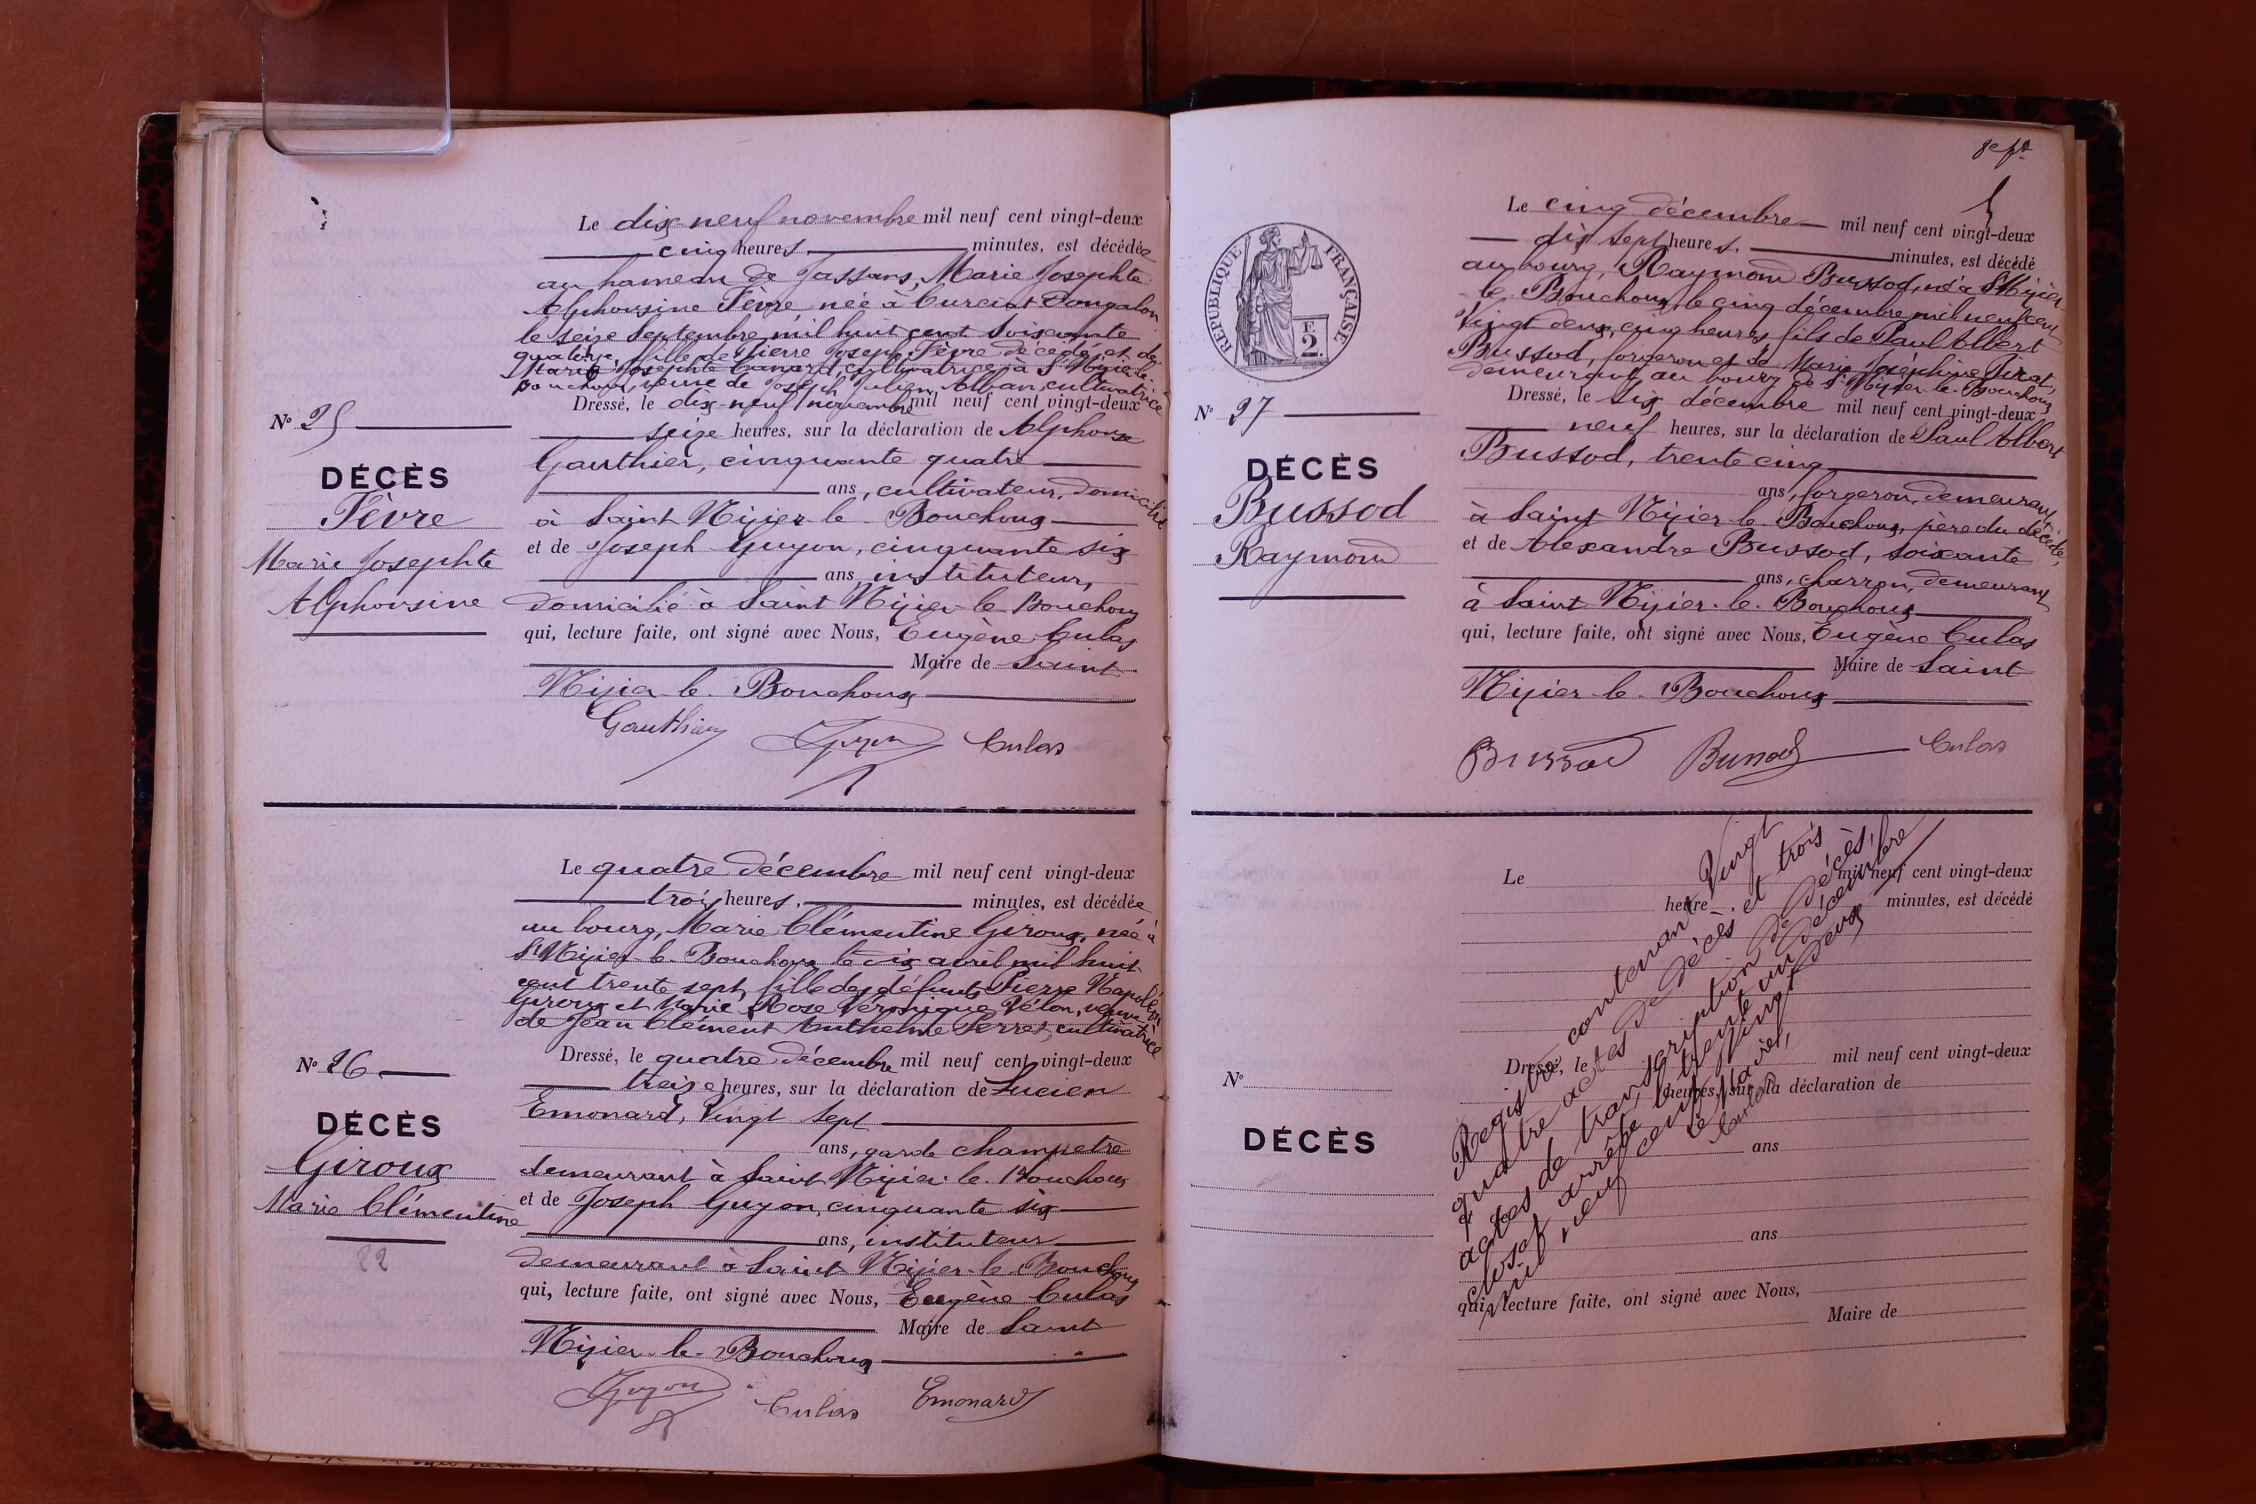 Le dix-neuf novembre mil neuf cent vingt-deux
cinq heures minutes, est décédée
au hameau de Tassans, Marie Josephte
Alphonsine Fèvre, née à Curciat Dongalon
le seize Septembre mil huit cent soixante
quatorze, fille de Pierre Joseph Fèvre décédé, et de
Marie Josephte cultivatrice à St Nizier le
Bouchoux, veuve de Joseph Julien Alban, cultivatrice
Dressé, le dix-neuf novembre mil neuf cent vingt-deux
seize heures, sur la déclaration de Alphonse
Gauthier, cinquante quatre
ans, cultivateur, domicilié
à Saint Nizier-le-Bouchoux
et de Joseph Guyon, cinquante six
ans, instituteur,
domicilié à Saint Nizier-le-Bouchoux
qui, lecture faite, ont signé avec Nous, Eugène Culas
Maire de Saint
Nizier-le-Bouchoux
Gauthier Guyon Culas
No 25
DÉCÈS
Fèvre
Marie Josephte
Alphonsine
Le quatre décembre mil neuf cent vingt-deux
trois heures, minutes, est décédée
au bourg, Marie Clémentine Giroux, née à
St Nizier-le-Bouchoux le six avril mil huit
cent trente sept, fille des défunts Pierre Napoléon
Giroux et Marie Rose Véronique Vélon, veuve
de Jean Clément Anthelme Perret, cultivatrice
Dressé, le quatre décembre mil neuf cent vingt-deux
treize heures, sur la déclaration de Lucien
Emonard, Vingt sept
ans, garde champetre
demeurant à Saint Nizier-le-Bouchoux
et de Joseph Guyon, cinquante six
ans, instituteur
demeurant à Saint Nizier-le-Bouchoux
qui, lecture faite, ont signé avec Nous, Eugène Culas
Maire de Saint
Nizier-le-Bouchoux
Guyon Culas Emonard
No 26
DÉCÈS
Giroux
Marie Clémentine
22
RÉPUBLIQUE FRANÇAISE.
F.
2.
Le cinq décembre mil neuf cent vingt-deux
dix sept heures. minutes, est décédé
au bourg, Raymond Bussod, né à St Nizier
le Bouchoux, le cinq décembre mil neuf cent
Vingt deux, cinq heures, fils de Paul Albert
Bussod, forgeron et de Marie Joséphine Jurat,
demeurant au bourg de St Nizier-le-Bouchoux
Dressé, le six décembre mil neuf cent vingt-deux
neuf heures, sur la déclaration de Paul Albert
Bussod, trente cinq
ans, forgeron, demeurant
à Saint Nizier-le-Bouchoux, père du décédé,
et de Alexandre Bussod, soixante
ans, charron, demeurant
à Saint Nizier-le-Bouchoux
qui, lecture faite, ont signé avec Nous, Eugène Culas
Maire de Saint
Nizier-le-Bouchoux
Bussod Bussod Culas
No 27
DÉCÈS
Bussod
Raymond
Le mil neuf cent vingt-deux
heure minutes, est décédé
Dressé, le mil neuf cent vingt-deux
heures, sur la déclaration de
ans
ans
qui, lecture faite, ont signé avec Nous,
Maire de
No
DÉCÈS
Registre contenant Vingt
quatre actes de décès et trois
actes de transcription de décès,
clos et arrêté le trente un décembre
mil neuf cent vingt deux
Le Maire,
Culas